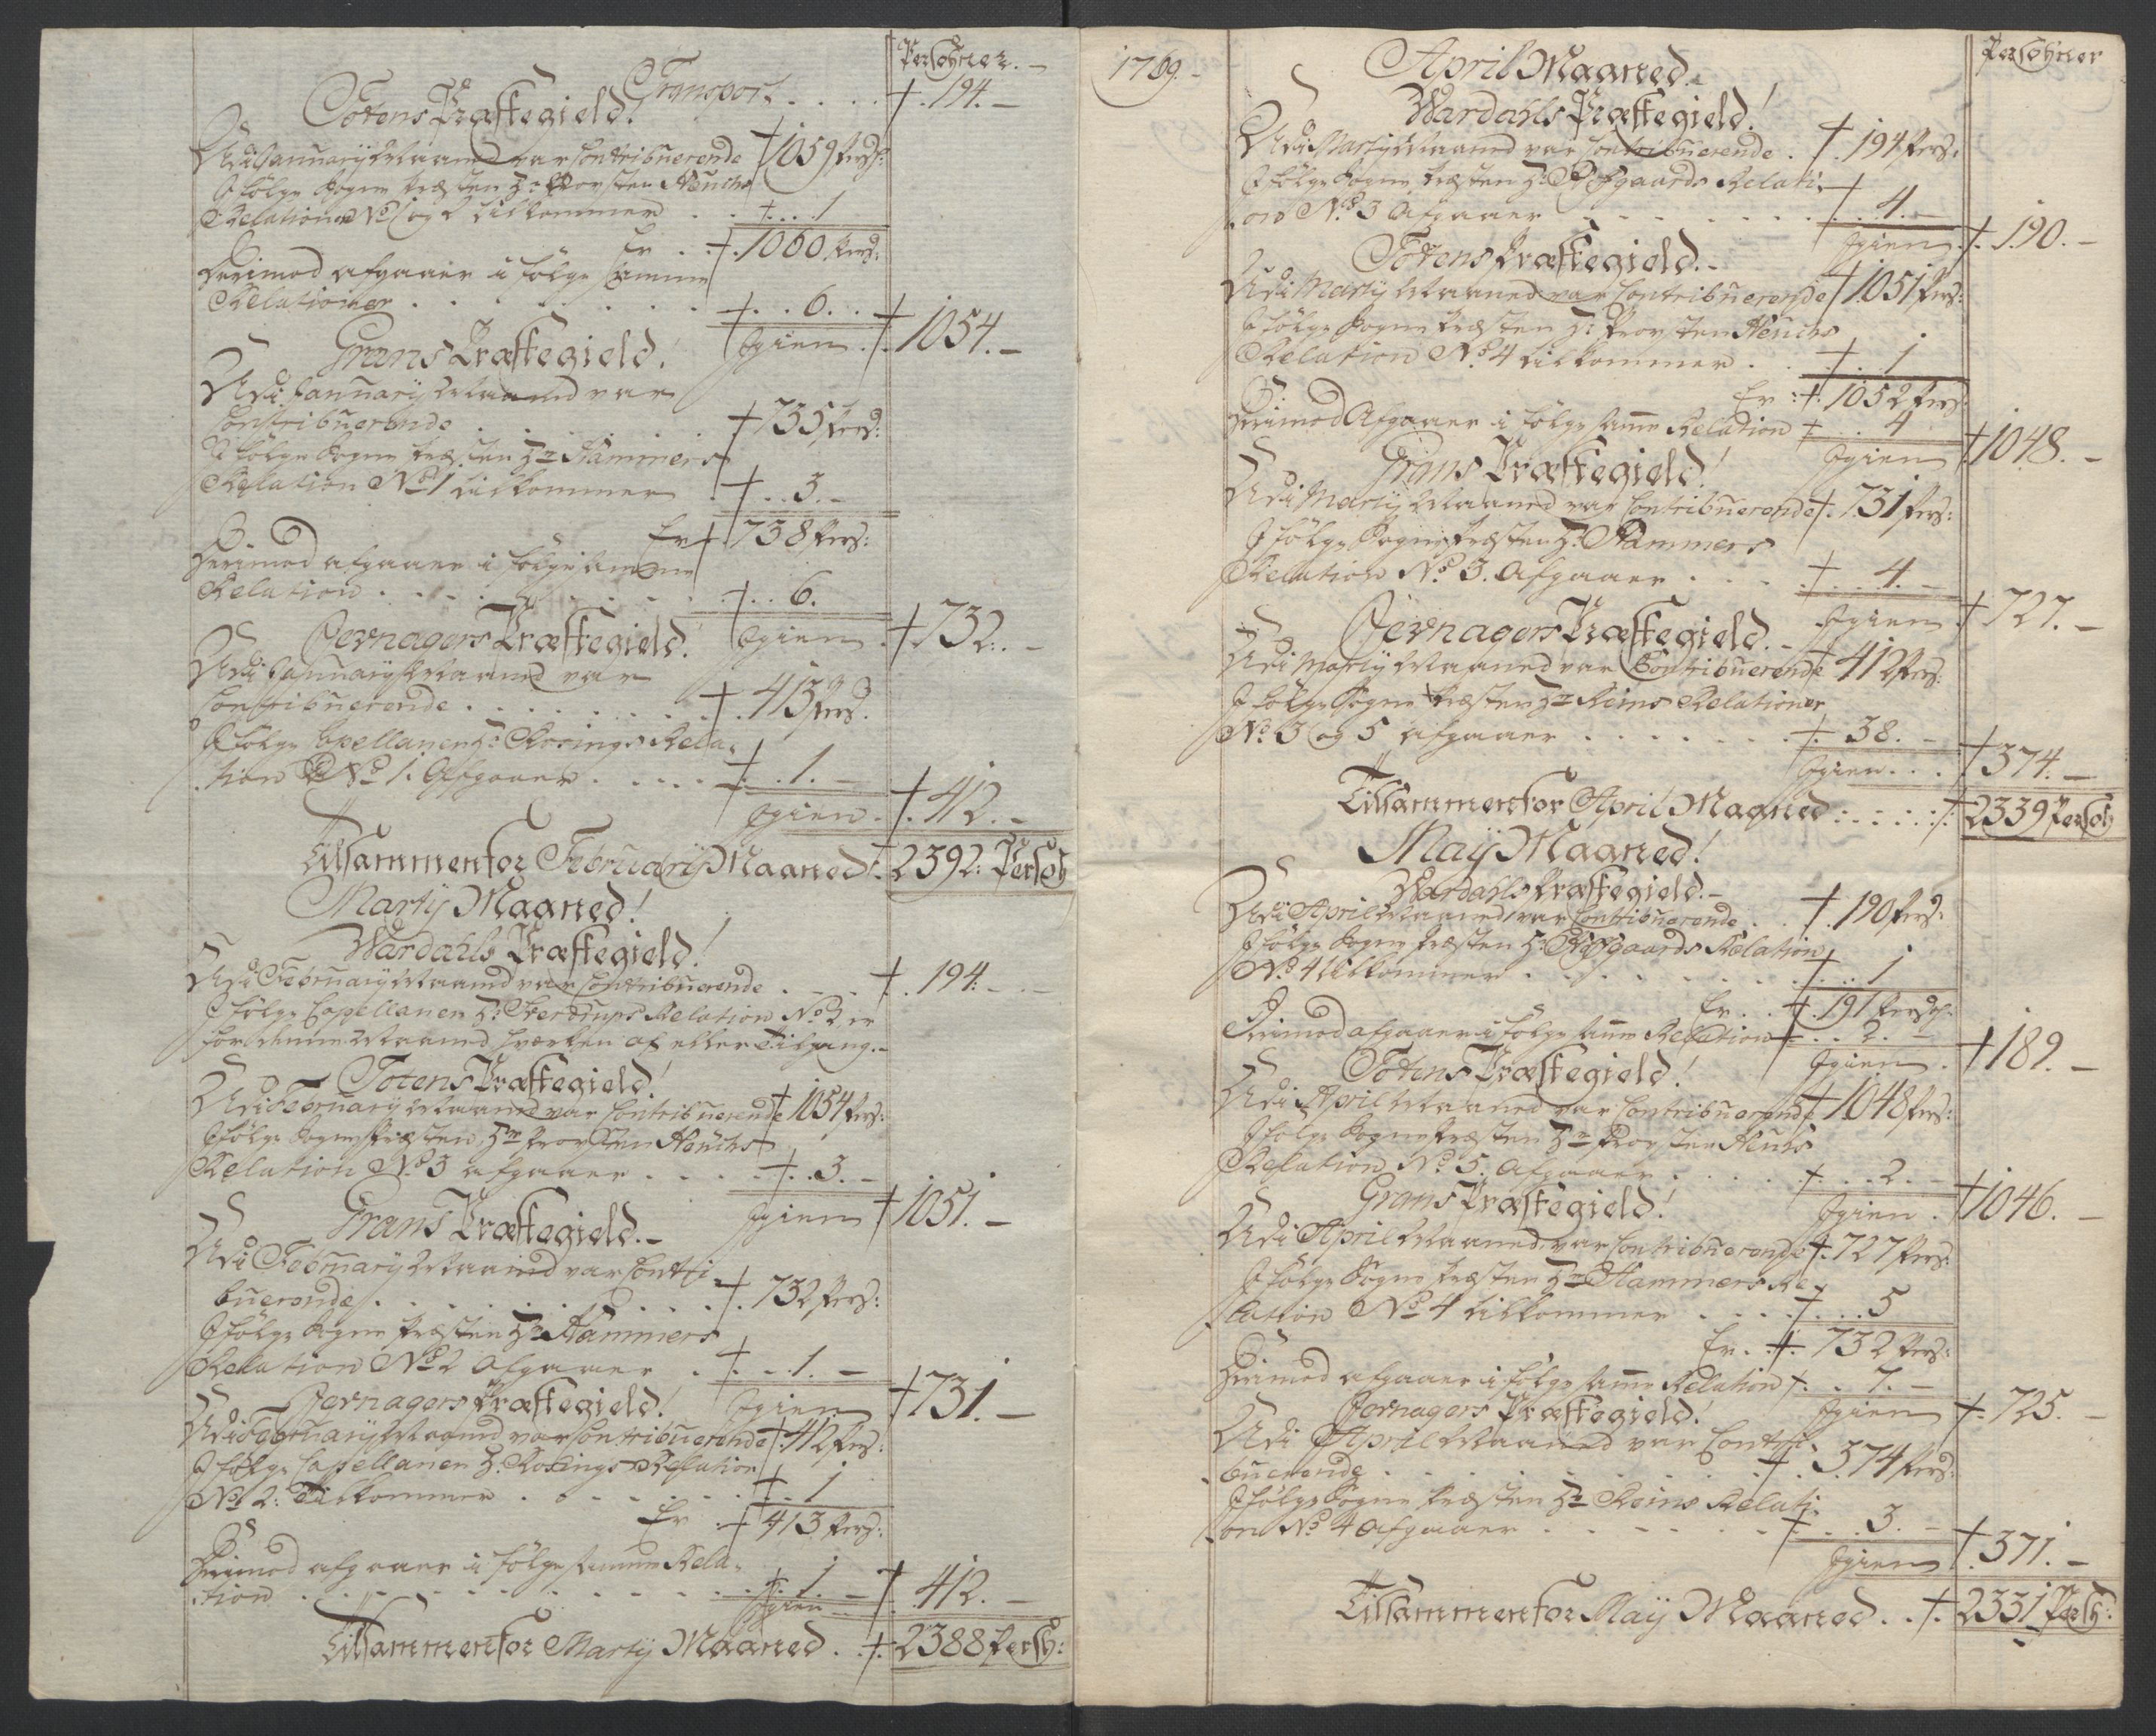 Persohner. -
Transport . . . . † . 194. -
Totens Præstegield!
Udi January Maaned var Contribuerende † 1059 Persh:
I følge Sogne Præsten Hr. Provsten Heuchs
Relationer No. 1 og 2 tilkommer . . † . . . 1
Er . . † . 1060. Pers:
Derimod afgaaer i følge samme
Relationer . . . . . . . † . . 6. . -
Igien . † 1054. -
Grans Præstegield!
Udi January Maaned var
Contribuerende . . . . . † 735 Pers:
I følge Sogne Præsten Hr. Hammers
Relation No. 1 tilkommer † . . 3. -
Er † . 738 Pers:
Derimod afgaaer i følge samme
Relation . . . . . . . † . . 6.
Igien . † 732. . -
Jevnagers Præstegield!
Udi January Maaned var
Contribuerende . . . . . . † . 413 Pers.
I følge Capellanen Hr. Rosings Rela-
tion No. 1. Afgaaer . . . . † . . 1. -
Igien . † . 412. -
Tilsammen for February Maaned † . 2392: Persoh
Marty Maaned!
Wardahls Præstegield!
Udi February Maaned var Contribuerende . . . † . 194. - -
I følge Capellanen Hr. Relation No. 2 er
for denne Maaned hverken af eller Tilgang. -
Totens Præstegield!
Udi February Maaned var Contribuerende † 1054 Pers:
I følge Sogne Præsten Hr. Provsten Heuchs
Relation No. 3 afgaaer . . . . † . . 3. -
Igien † 1051. -
Grans Præstegield. -
Udi February Maaned var Contri-
buerende . . . . . . . . † . 732 Pers:
I følge Sogne Præsten Hr. Hammers
Relation No. 2 Afgaaer . † . . . 1. -
Igien † 731. -
Jevnagers Præstegield!
Udi February Maaned var Contribuerende † . 412 Pers:
I følge Capellanen Hr. Rosings Relation
No. 2: Tilkommer . . . . . . † . . 1
Er . † 413 Pers:
Derimod afgaaer i følge samme Rela-
tion . . . . . . . . . † . 1. -
Igien - † . 412. -
Tilsammen for Marty Maaned . † . 2388 Persh:
1769. -
Persohner
April Maaned. -
Wardahls Præstegield!
Udi Marty Maaned var Contribuerende . † . 194 Pers.
I følge Sogne Præsten Hr. Relati-
on No. 3 Afgaaer . . . . . . . † . . 4. -
Igien . † . 190. -
Totens Præstegield. -
Udi Marty Maaned var Contribuerende † 1051 Pers:
I følge Sogne Præsten Hr. Provsten Heuchs
Relation No. 4 tilkommer . . † . . 1
Er . † . 1052 Pers:
Derimod Afgaaer i følge samme Relation † . . . 4
Igien † 1048. -
Grans Præstegield!
Udi Marty Maaned var Contribuerende † . 731 Pers:
I følge Sogne Præsten Hr. Hammers
Relation No. 3. Afgaaer . . . . † . . 4. -
Igien † 727. -
Jevnagers Præstegield. -
Udi Marty Maaned var Contribuerende † 412 Pers:
I følge Sogne Præsten Hr. Reins Relationer
No. 3 og 5 afgaaer . . . . . . . † . 38. -
Igien . . . † 374. -
Tilsammen for April Maaned . . . . . † . 2339 Persoh
May Maaned!
Wardahls Præstegield. -
Udi April Maaned var Contribuerende . . † . 190 Pers.
I følge Sogne Præsten Hr. Relation
No. 4 tilkommer . . . . . . . † . . 1
Er . . † . 191 Persh:
Derimod afgaaer i følge samme Relation † . . 2. -
Igien . † 189. -
Totens Præstegield!
Udi April Maaned var Contribuerende † 1048 Pers:
I følge Sogne Præsten Hr. Provsten Heuchs
Relation No. 5. Afgaaer . . . . . † . . . 2. -
Igien . † 1046. -
Grans Præstegield!
Udi April Maaned var Contribuerende † . 727 Pers:
I følge Sogne Præsten Hr. Hammers Re-
lation No. 4 tilkommer . . . . † . . . 5
Er . † . 732 Pers:
Derimod afgaaer i følge samme Relation † . . 7. -
Igien † . 725. -
Jevnagers Præstegield!
Udi April Maaned var Contri-
buerende . . . . . . . . † . 374 Pers:
I følge Sogne Præsten Hr. Reins Relati-
on No. 4 Afgaaer . . . . . . † . . . 3. -
Igien † . 371. -
Tilsammen for May Maaned . . † . 2331 Persh: